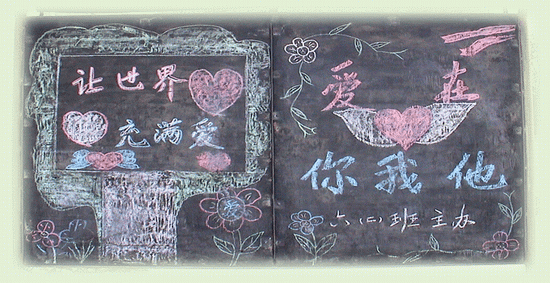 让世界
充满爱
爱在
你我他
六(四)班主办